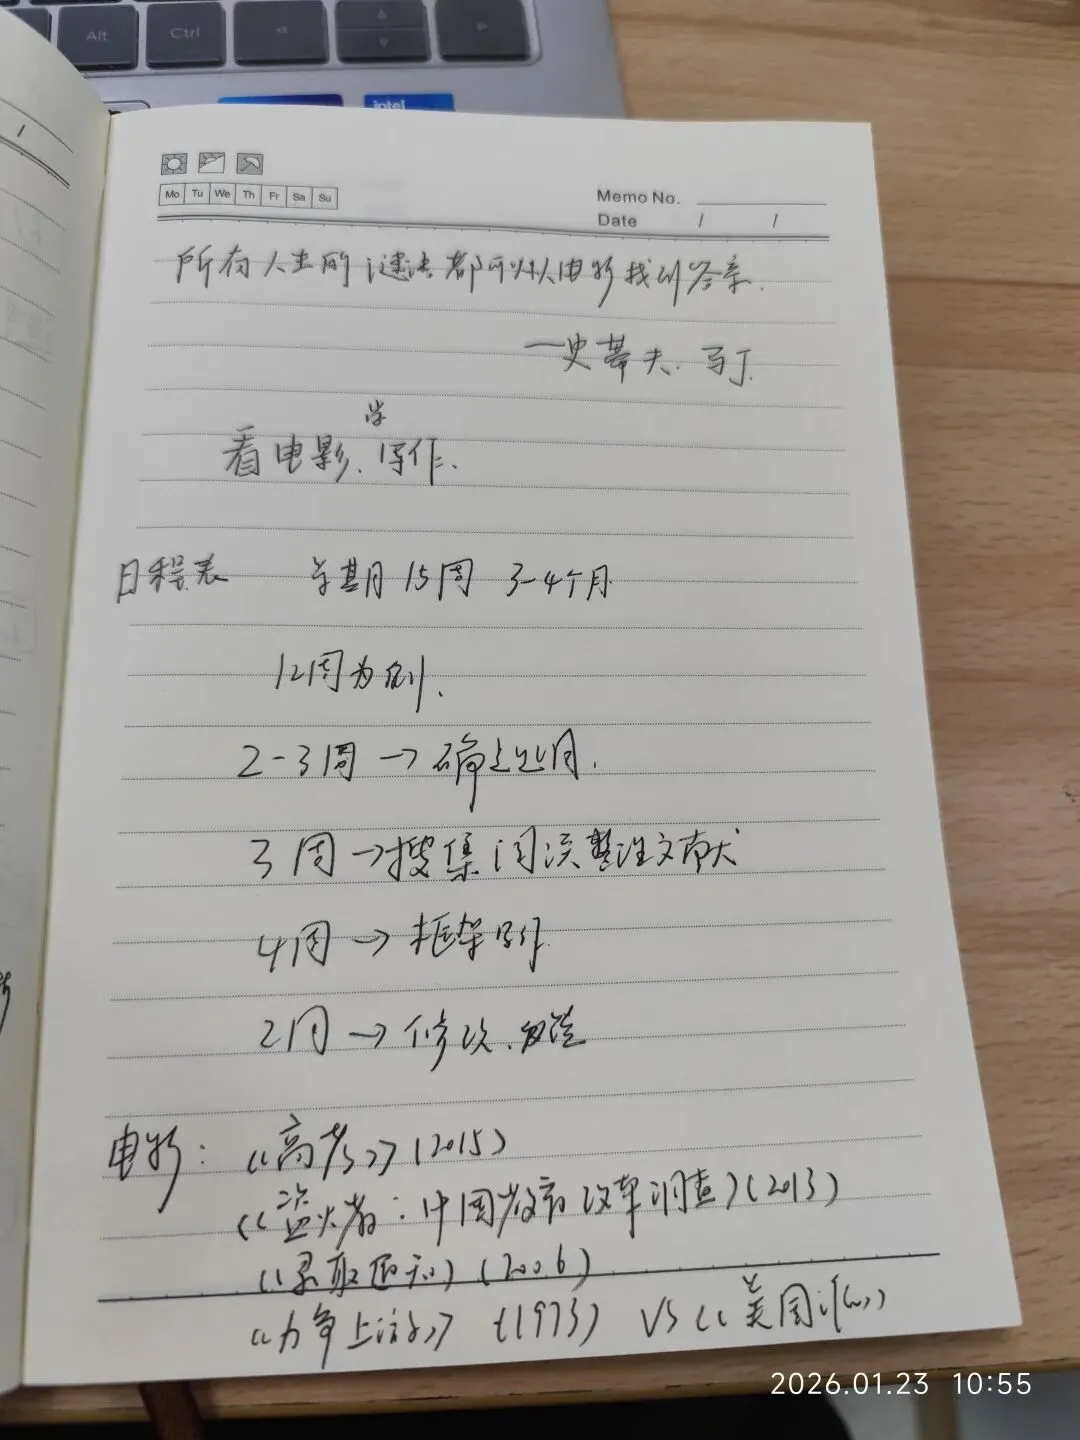 Alt Ctrl
intel
Mo Tu We Th Fr Sa Su
Memo No.
Date / /
所有人生的谜法都可以从电影找到答案.
—史蒂夫.马丁.
学
看电影、写作.
日程表 学期月15周 3-4个月
12周为例.
2-3周→确定
3周→搜集阅读整理文献
4周→框架写作
2周→修改、
电影:《高考》(2015)
《盗火者:中国教育改革调查》(2013)
《录取通知》(2006)
《力争上游》(1973) VS《美国
2026.01.23 10:55